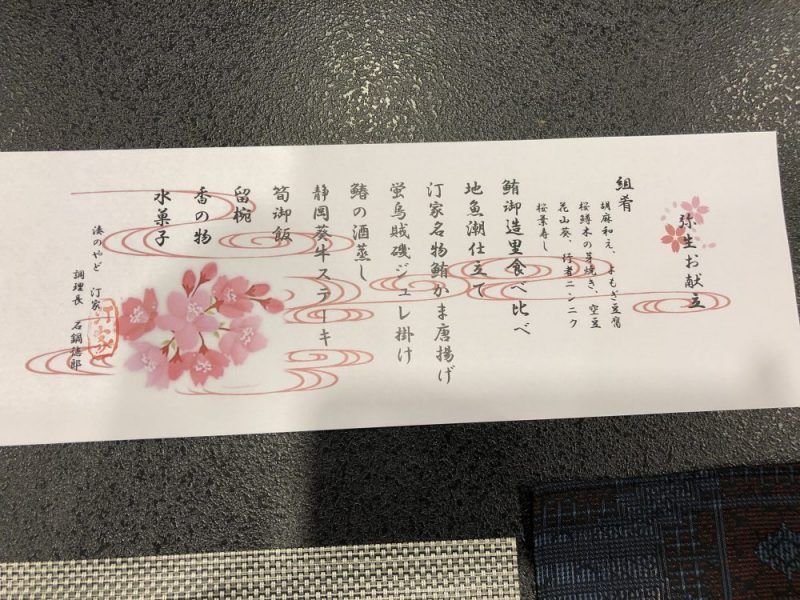 弥生お献立
組肴
胡麻和え、よもぎ豆腐
桜鱒木の芽焼き、空豆
花山葵、行者ニンニク
桜葉寿し
鮪御造里食べ比べ
地魚潮仕立て
汀家名物鮪かま唐揚げ
蛍烏賊磯ジュレ掛け
鰆の酒蒸し
静岡葵牛ステーキ
筍御飯
留椀
香の物
水菓子
湊のやど 汀家
調理長 石鍋徳郎